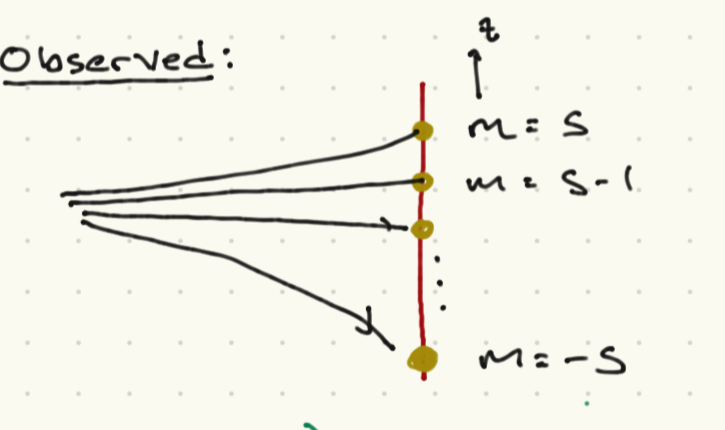 Observed:
z
m = s
m = s-1
⋮
m = -s